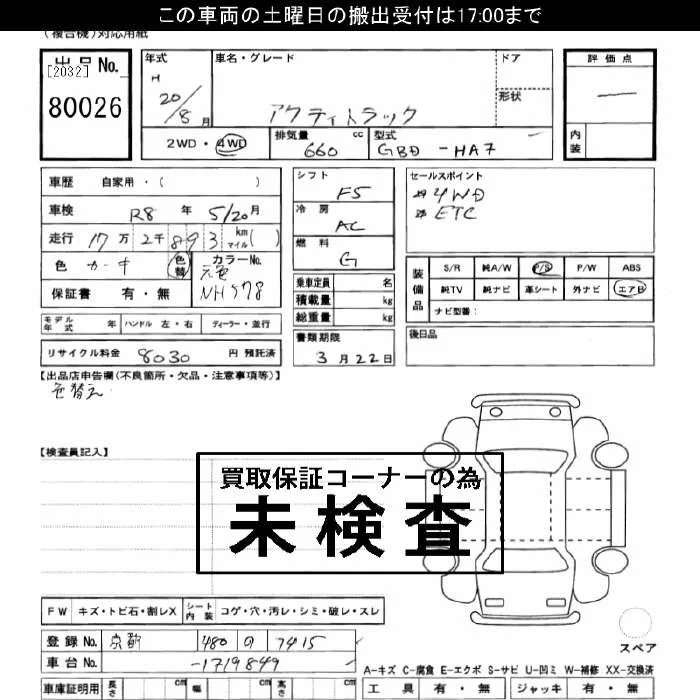 この車両の土曜日の搬出受付は17:00まで
(複合機)対応用紙
出品No.
[2032]
80026
年式
H
20/8月
車名・グレード
アクティトラック
ドア
形状
評価点
—
内装
2WD・4WD
排気量 cc
660
型式
GBD -HA7
車歴 自家用・( )
車検 R8年 5/20月
走行 17万2千893 km マイル( )
色 カーキ 色替
カラーNo.
元色
NH578
保証書 有・無
モデル年式 年 ハンドル 左・右 ディーラー・並行
リサイクル料金 8030 円 預託済
シフト
F5
冷房
AC
燃料
G
乗車定員 名
積載量 kg
総重量 kg
書類期限
3月22日
セールスポイント
4WD
ETC
装備品
S/R 純A/W P/S P/W ABS
純TV 純ナビ 革シート 外ナビ エアB
ナビ型番:
後日品
【出品店申告欄(不良箇所・欠品・注意事項等)】
色替え
【検査員記入】
買取保証コーナーの為
未検査
FW キズ・トビ石・割レX シート内装 コゲ・穴・汚レ・シミ・破レ・スレ
登録No. 京都 480 の 7415
車台No. -1719849
車庫証明用 長さ cm 幅 cm 高さ cm
スペア
A-キズ C-腐食 E-エクボ S-サビ U-凹ミ W-補修 XX-交換済
工具 有・無 ジャッキ 有・無